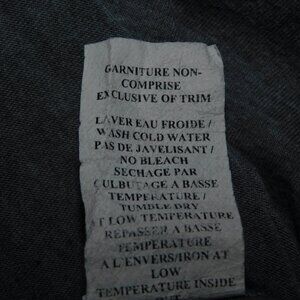 GARNITURE NON-
COMPRISE
EXCLUSIVE OF TRIM
LAVER EAU FROIDE /
WASH COLD WATER
PAS DE JAVELISANT /
NO BLEACH
SECHAGE PAR
CULBUTAGE A BASSE
TEMPERATURE /
TUMBLE DRY
AT LOW TEMPERATURE
REPASSER A BASSE
TEMPERATURE
A L'ENVERS/IRON AT
LOW
TEMPERATURE INSIDE
OUT